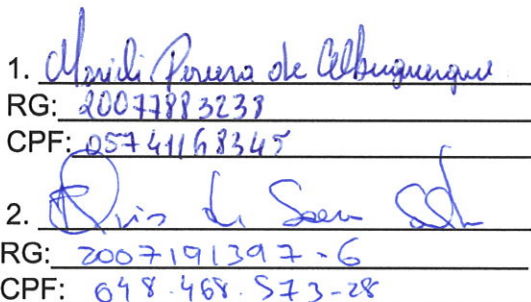 1. Pereira de Albuquerque
RG: 20077883238
CPF: 05741168345
2. de
RG: 2007191397-6
CPF: 648.468.573-28